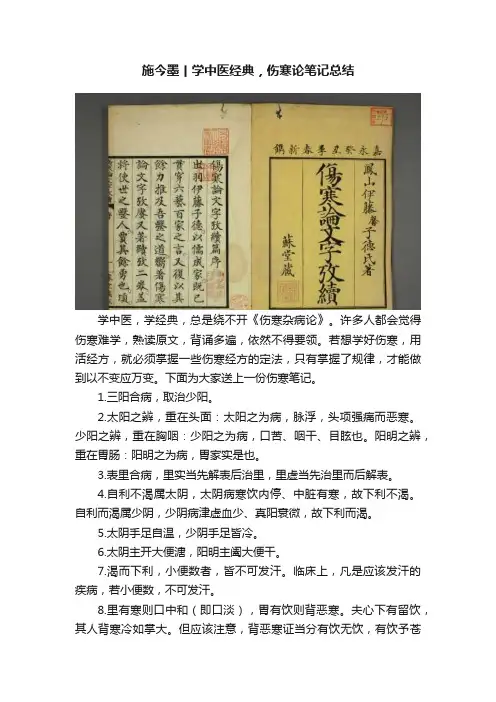 施今墨 | 学中医经典，伤寒论笔记总结
嘉永癸丑季春新鐫
鳳山伊藤馨子德氏著
傷寒論文字攷續
蘇堂藏
傷寒論文字攷續篇序
出羽伊藤子德以儒成家既已
貫穿六藝百家之言又復以其
餘力推及吾醫之道嚮著傷寒
論文字攷賡又著續攷二卷蓋
將使世之醫人賈其餘勇也頃
学中医，学经典，总是绕不开《伤寒杂病论》。许多人都会觉得
伤寒难学，熟读原文，背诵多遍，依然不得要领。若想学好伤寒，用
活经方，就必须掌握一些伤寒经方的定法，只有掌握了规律，才能做
到以不变应万变。下面为大家送上一份伤寒笔记。
1.三阳合病，取治少阳。
2.太阳之辨，重在头面：太阳之为病，脉浮，头项强痛而恶寒。
少阳之辨，重在胸咽：少阳之为病，口苦、咽干、目眩也。阳明之辨，
重在胃肠：阳明之为病，胃家实是也。
3.表里合病，里实当先解表后治里，里虚当先治里而后解表。
4.自利不渴属太阴，太阴病寒饮内停、中脏有寒，故下利不渴。
自利而渴属少阴，少阴病津虚血少、真阳衰微，故下利而渴。
5.太阴手足自温，少阴手足皆冷。
6.太阴主开大便溏，阳明主阖大便干。
7.渴而下利，小便数者，皆不可发汗。临床上，凡是应该发汗的
疾病，若小便数，不可发汗。
8.里有寒则口中和（即口淡），胃有饮则背恶寒。夫心下有留饮，
其人背寒冷如掌大。但应该注意，背恶寒证当分有饮无饮，有饮予苍